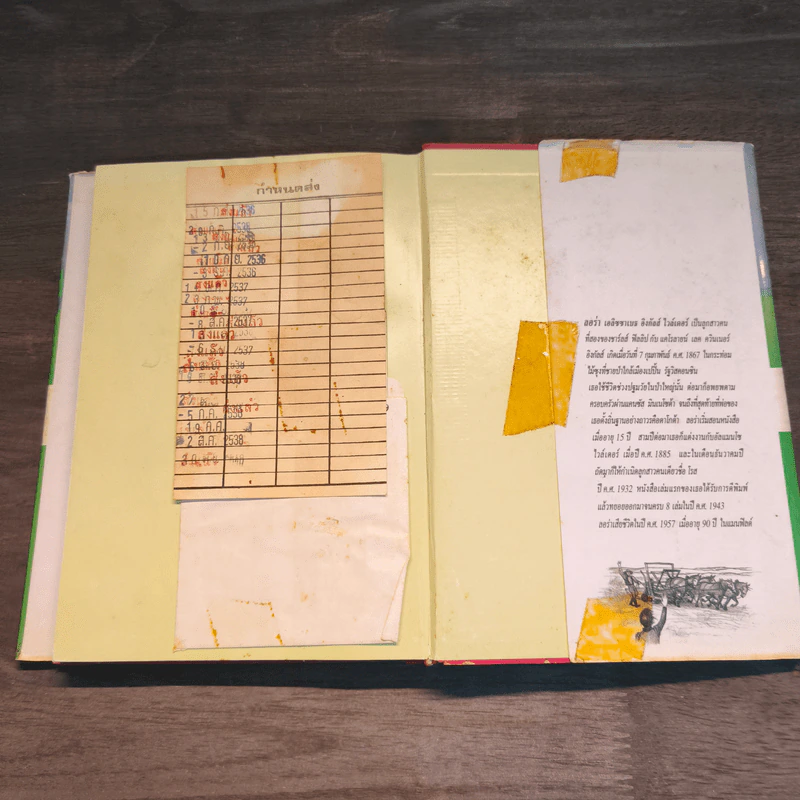 กำหนดส่ง
2536
2537
2537
- 8 ส.ค. 2537
ส่งแล้ว
2537
- 5 ก.ค. 2538
2 ส.ค. 2538
ลอร่า เอลิซซาเบธ อิงกัลส์ ไวล์เดอร์ เป็นลูกสาวคน
ที่สองของชาร์ลส์ ฟิลลิป กับ แคโรลายน์ เลค ควินเนอร์
อิงกัลส์ เกิดเมื่อวันที่ 7 กุมภาพันธ์ ค.ศ. 1867 ในกระท่อม
ไม้ซุงที่ชายป่าใกล้เมืองเปปิน รัฐวิสคอนซิน
เธอใช้ชีวิตช่วงปฐมวัยในป่าใหญ่นั้น ต่อมาก็อพยพตาม
ครอบครัวผ่านแคนซัส มินเนโซต้า จนถึงที่สุดท้ายที่พ่อของ
เธอตั้งถิ่นฐานอย่างถาวรคือดาโกต้า ลอร่าเริ่มสอนหนังสือ
เมื่ออายุ 15 ปี สามปีต่อมาเธอก็แต่งงานกับอัลแมนโซ
ไวล์เดอร์ เมื่อปี ค.ศ. 1885 และในเดือนธันวาคมปี
ถัดมาก็ให้กำเนิดลูกสาวคนเดียวชื่อ โรส
ปี ค.ศ. 1932 หนังสือเล่มแรกของเธอได้รับการตีพิมพ์
แล้วทยอยออกมาจนครบ 8 เล่มในปี ค.ศ. 1943
ลอร่าเสียชีวิตในปี ค.ศ. 1957 เมื่ออายุ 90 ปี ในแมนฟิลด์